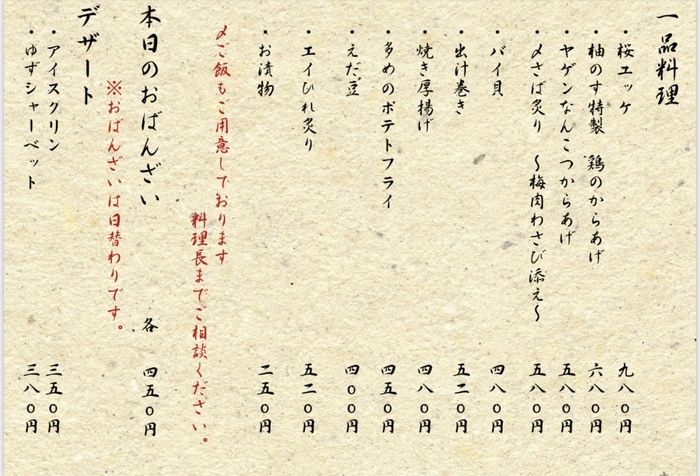 一品料理
・桜エッケ 九八〇円
・柚のす特製 鶏のからあげ 六八〇円
・ヤゲンなんこつからあげ 五八〇円
・〆さば炙り 〜梅肉わさび添え〜 五八〇円
・バイ貝 四八〇円
・出汁巻き 五二〇円
・焼き厚揚げ 四八〇円
・多めのポテトフライ 四五〇円
・えだ豆 四〇〇円
・エイひれ炙り 五二〇円
・お漬物 二五〇円
〆ご飯もご用意しております
料理長までご相談ください。
本日のおばんざい 各 四五〇円
※おばんざいは日替わりです。
デザート
・アイスクリン 三五〇円
・ゆずシャーベット 三八〇円